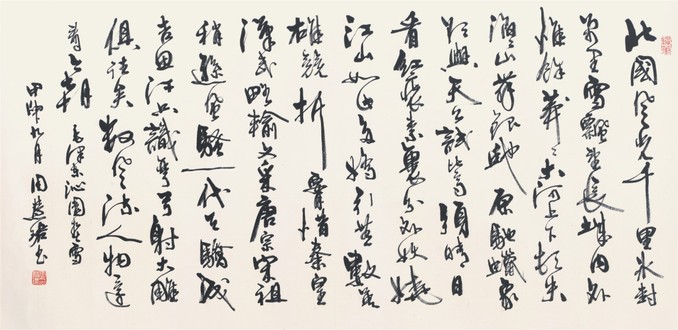 北國风光千里冰封
万里雪飄望長城内外
惟餘莽莽大河上下頓失
滔滔山舞銀蛇原馳蠟象
欲與天公試比高須晴日
看紅裝素裹分外妖嬈
江山如此多嬌引無數英
雄競折腰惜秦皇
漢武略輸文采唐宗宋祖
稍遜风騷一代天驕成
吉思汗只識彎弓射大雕
俱往矣數风流人物還
看今朝 毛澤東沁園春雪
甲申九月周慧珺書